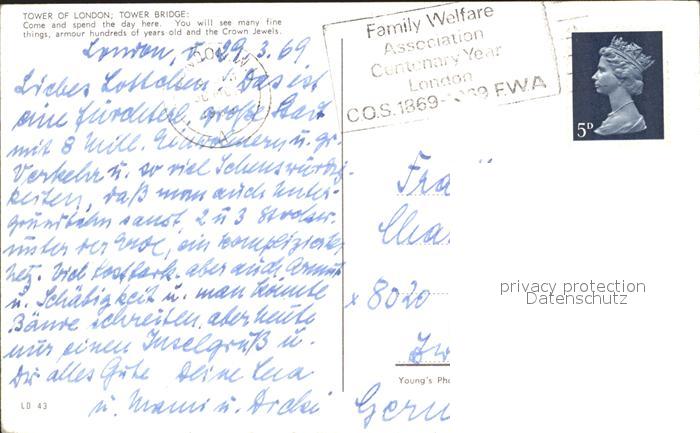 TOWER OF LONDON; TOWER BRIDGE:
Come and spend the day here. You will see many fine
things, armour hundreds of years old and the Crown Jewels.
London, 29.3.69
Liebes Lottchen. Das ist
eine fürchterl. große Stadt
mit 8 Mill. Einwohnern u. gr.
Verkehr u. so viel Sehenswürdig-
keiten, daß man auch Unter-
grundbahn saust, 2 u 3 Stockw.
unter der Erde, ein kompliziertes
Netz. Viel aber auch Armut
u. Schäbigkeit u. man könnte
Bände schreiben, aber heute
nur einen Inselgruß u.
Dir alles Gute Deine
u. Mami u.
LD 43
Family Welfare
Association
Centenary Year
London
C.O.S. 1869-1969 F.W.A
5D
Fra
Cha
x 8020
Zw
Young's Pho
Germ
privacy protection
Datenschutz